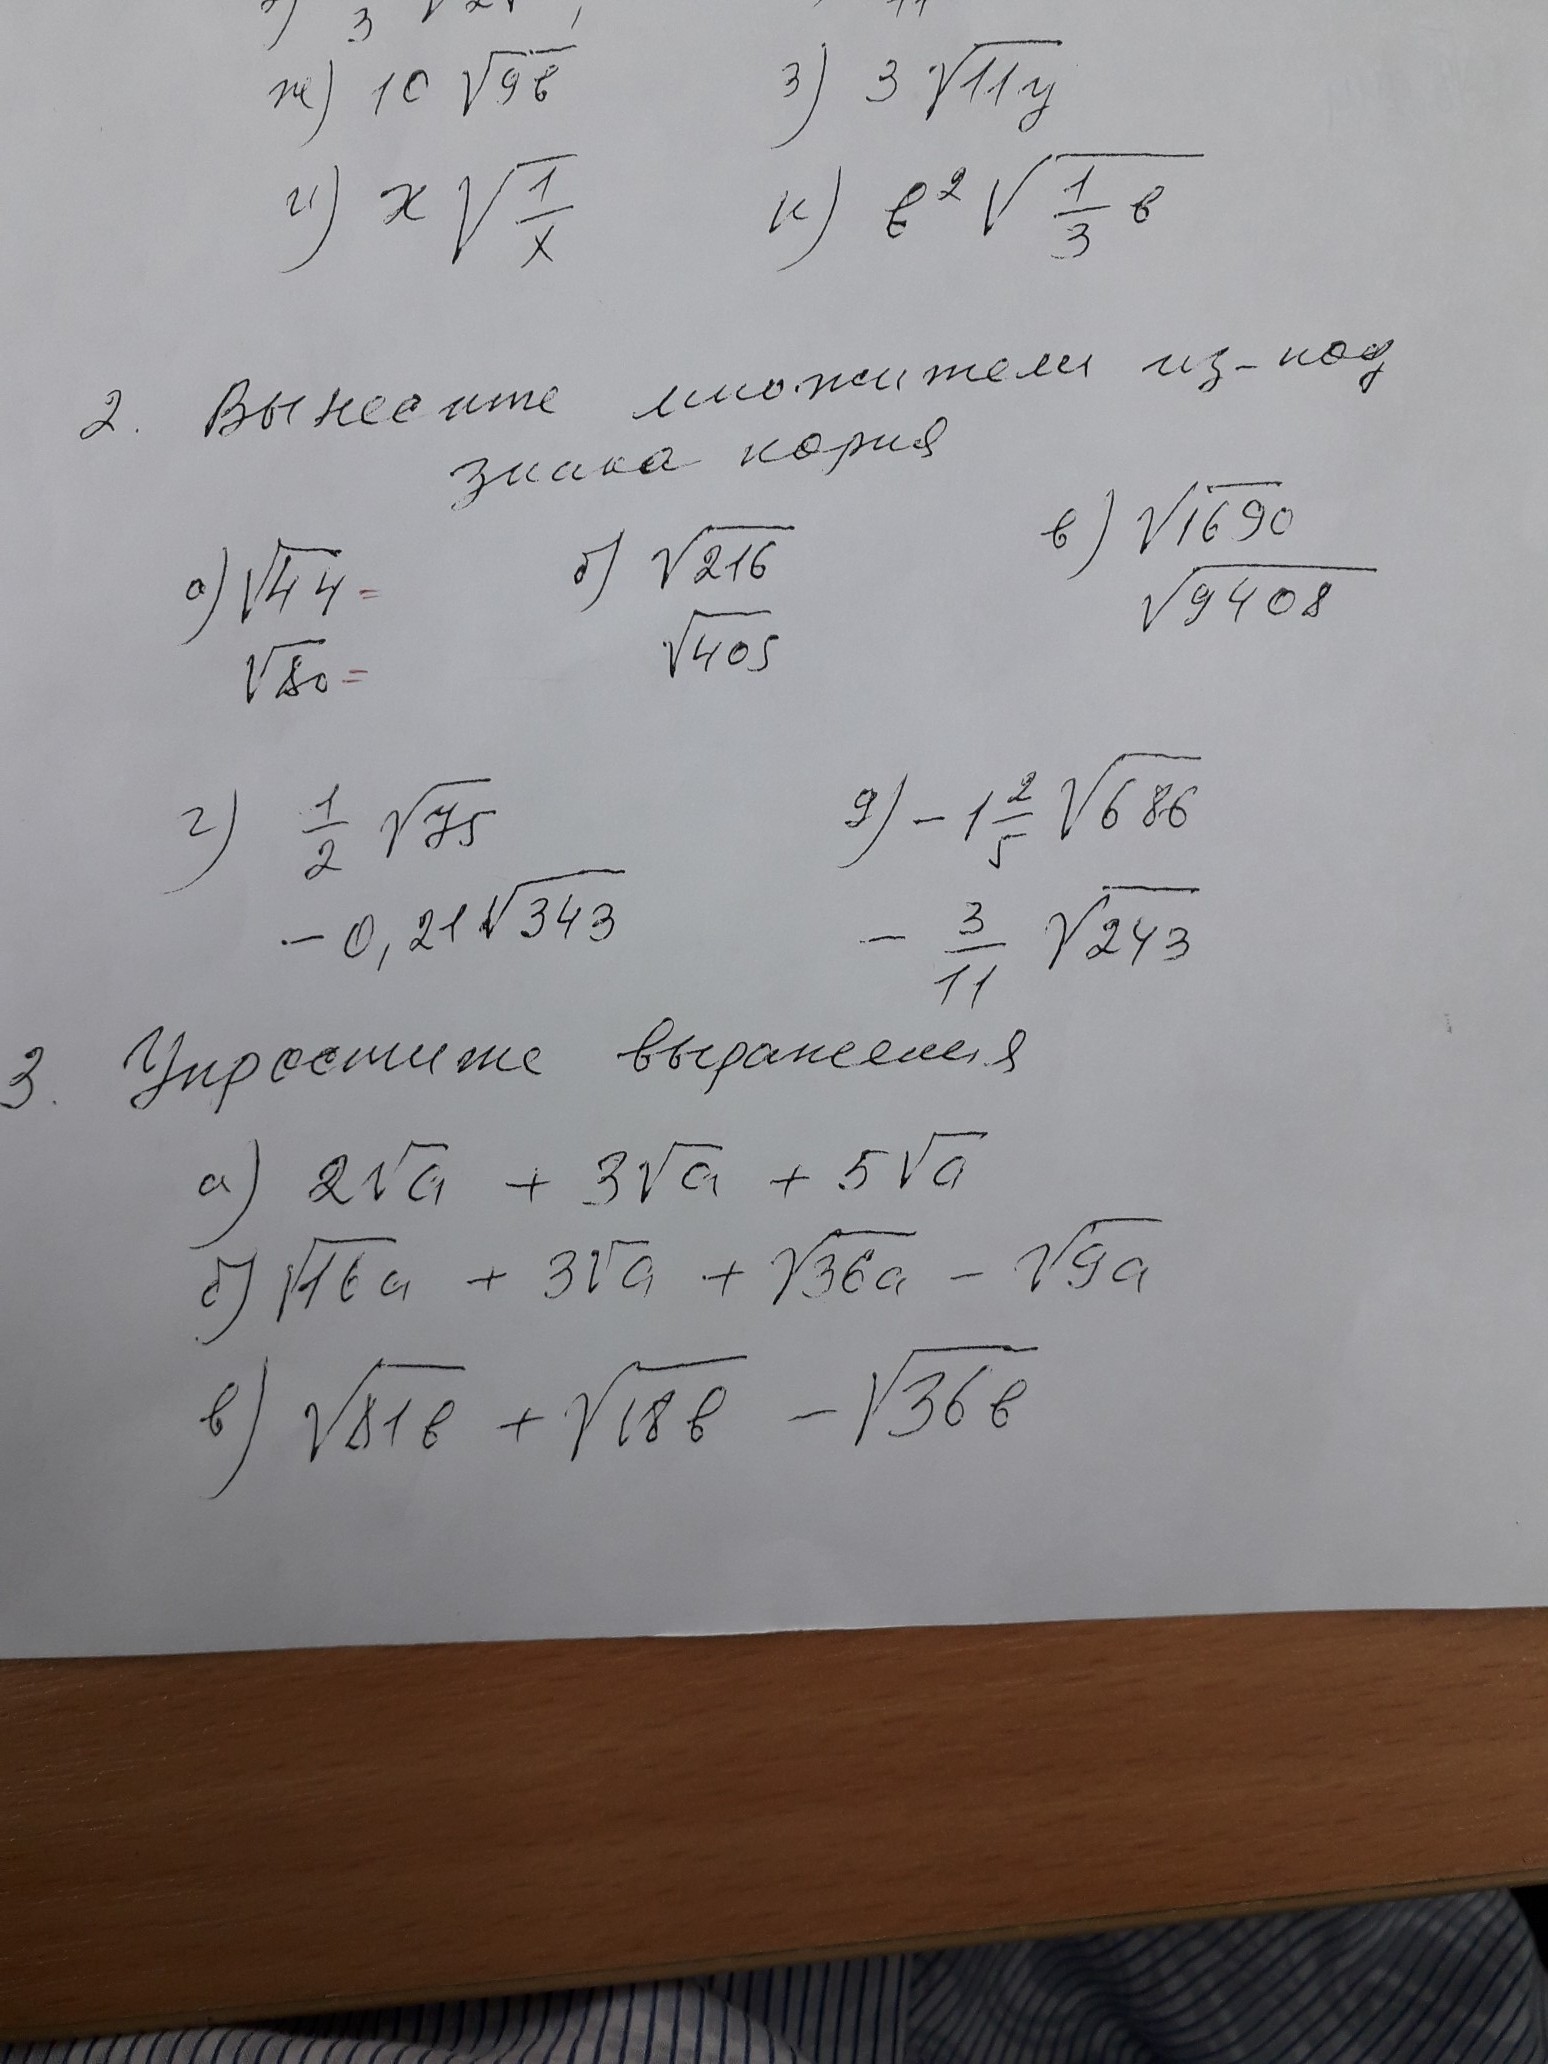 ж) 10 √9в з) 3 √11у
и) x √1/x к) в² √1/3 в
2. Вынесите множители из-под
знака корня
а) √44 = б) √216 в) √1690
√80 = √405 √9408
г) 1/2 √75 д) - 1 2/5 √686
- 0,21√343 - 3/11 √243
3. Упростите выражения
а) 2√a + 3√a + 5√a
б) √16a + 3√a + √36a - √9a
в) √81в + √18в - √36в